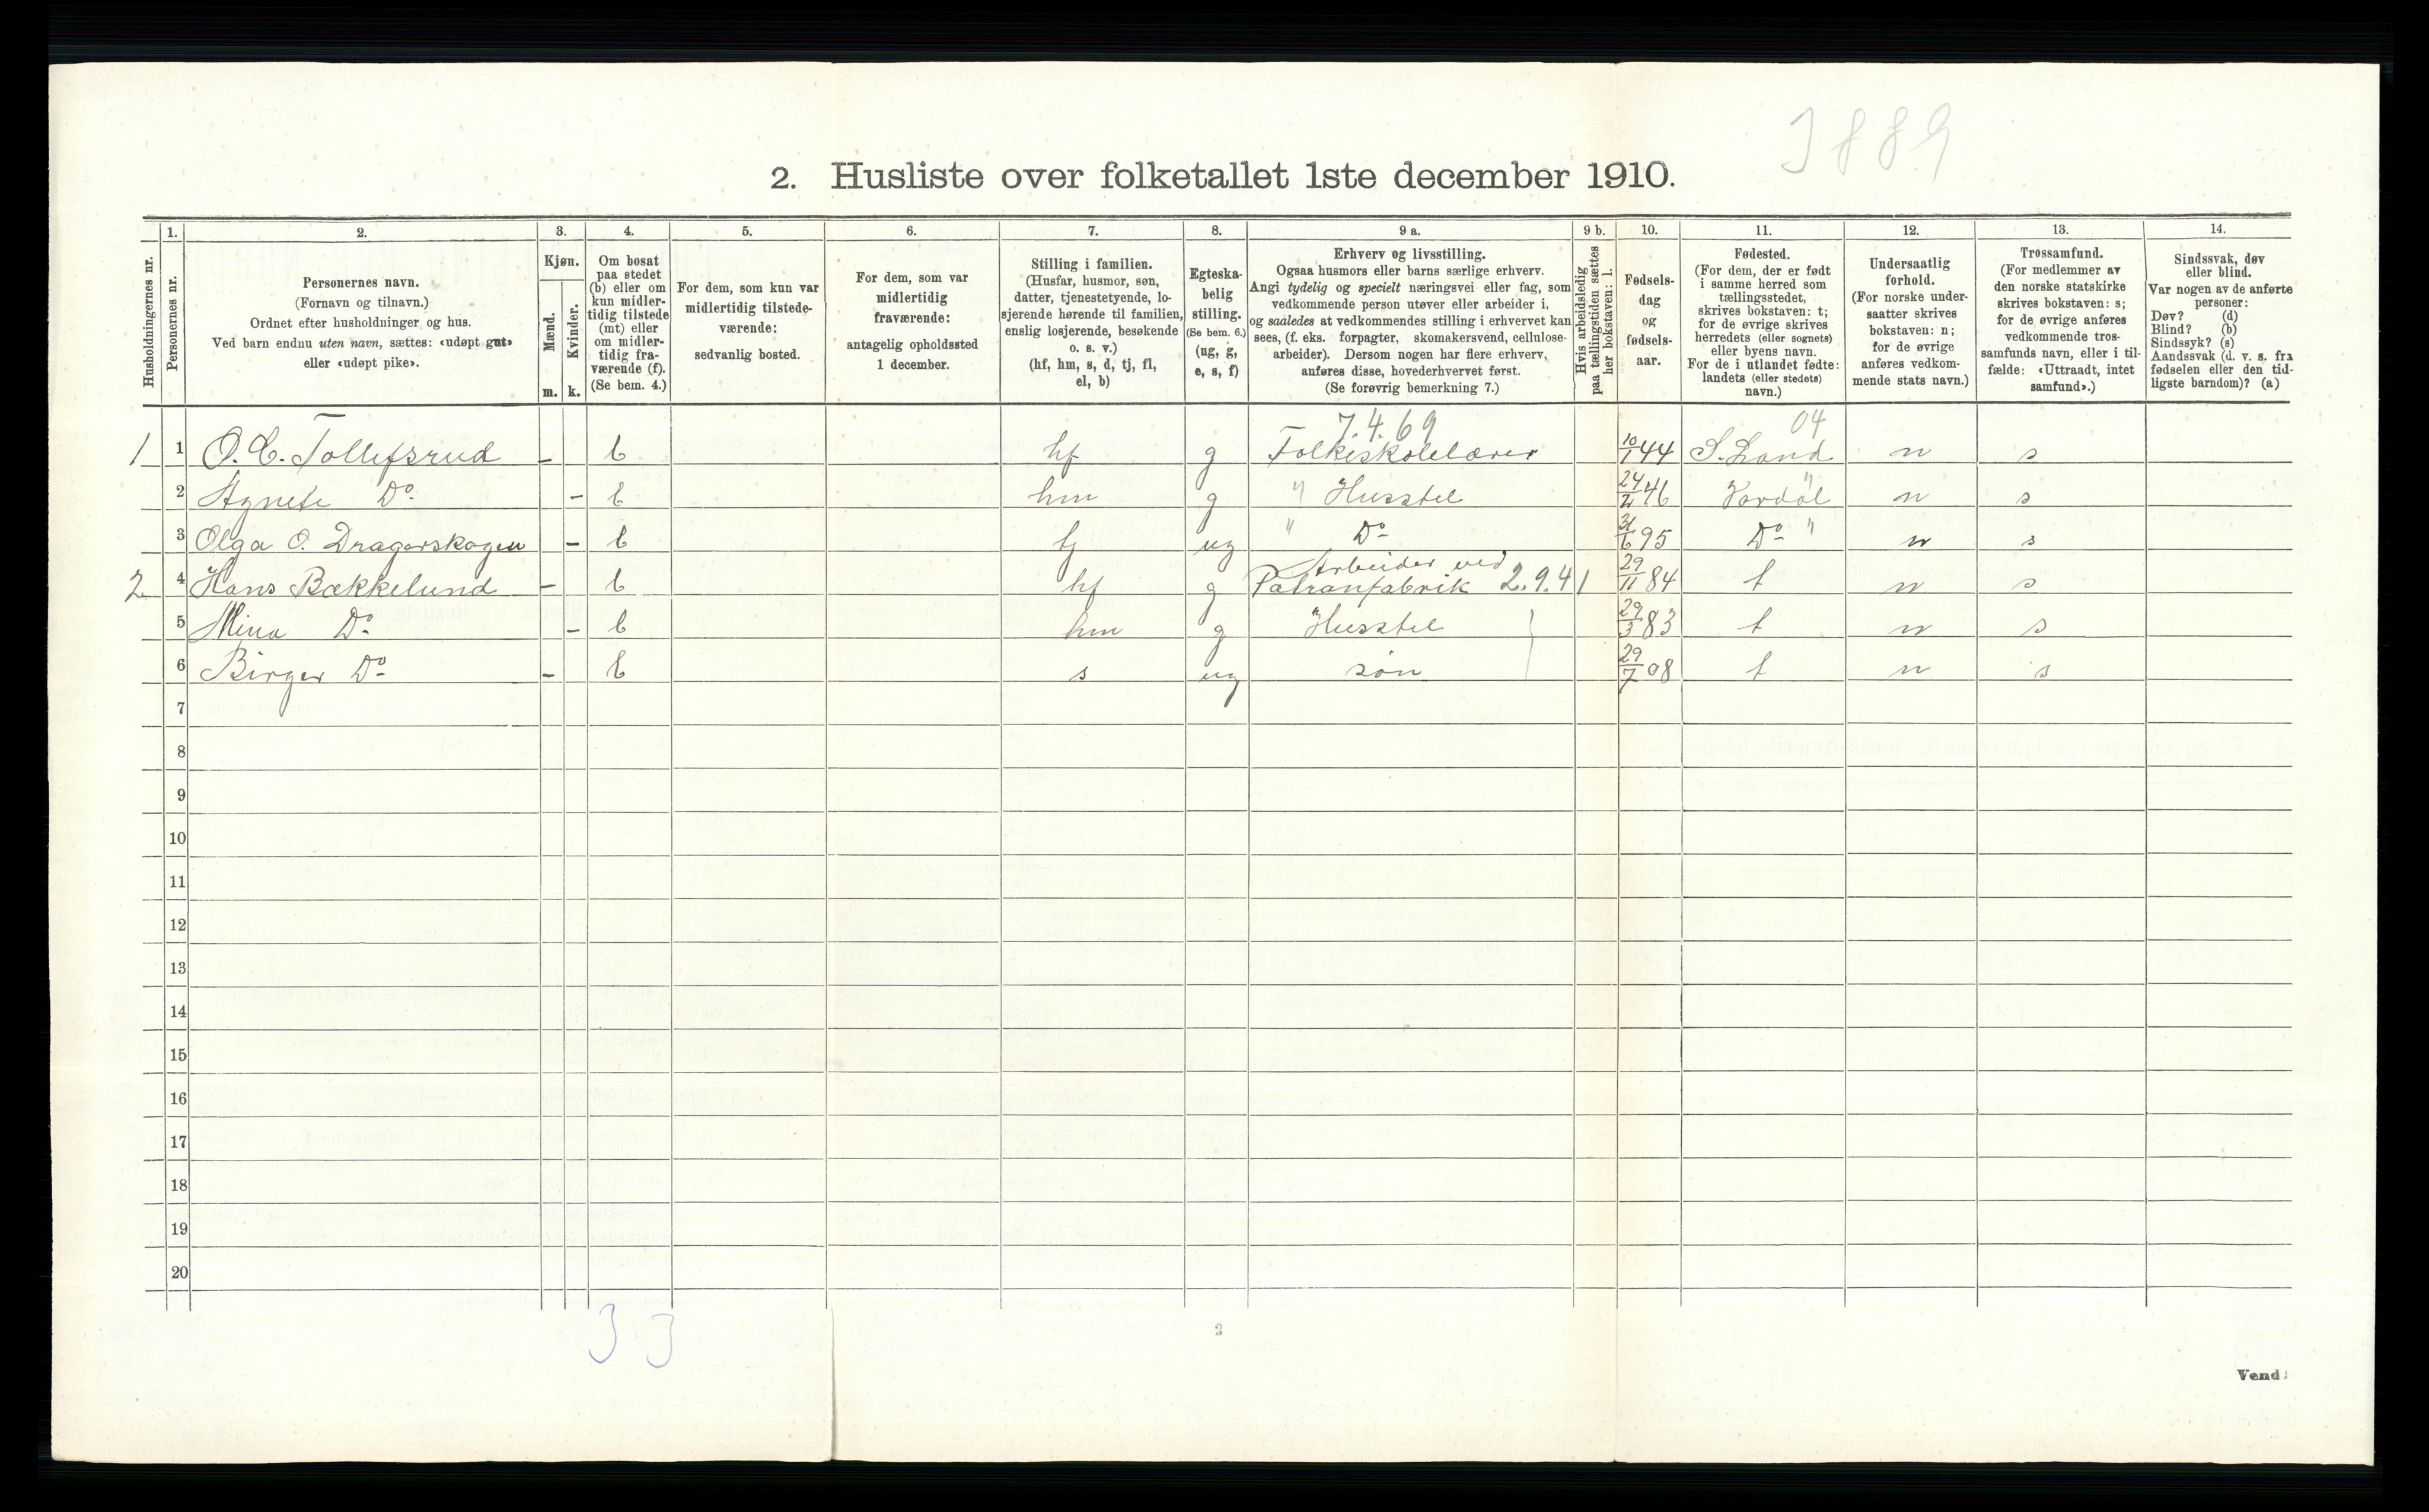 3889
2. Husliste over folketallet 1ste december 1910.
Husholdningernes nr.
1. Personernes nr.
2. Personernes navn.
(Fornavn og tilnavn.)
Ordnet efter husholdninger og hus.
Ved barn endnu uten navn, sættes: «udøpt gut»
eller «udøpt pike».
3. Kjøn.
Mænd. m.
Kvinder. k.
4. Om bosat
paa stedet
(b) eller om
kun midler-
tidig tilstede
(mt) eller
om midler-
tidig fra-
værende (f).
(Se bem. 4.)
5. For dem, som kun var
midlertidig tilstede-
værende:
sedvanlig bosted.
6. For dem, som var
midlertidig
fraværende:
antagelig opholdssted
1 december.
7. Stilling i familien.
(Husfar, husmor, søn,
datter, tjenestetyende, lo-
sjerende hørende til familien,
enslig losjerende, besøkende
o. s. v.)
(hf, hm, s, d, tj, fl,
el, b)
8. Egteska-
belig
stilling.
(Se bem. 6.)
(ug, g,
e, s, f)
9 a. Erhverv og livsstilling.
Ogsaa husmors eller barns særlige erhverv.
Angi tydelig og specielt næringsvei eller fag, som
vedkommende person utøver eller arbeider i,
og saaledes at vedkommendes stilling i erhvervet kan
sees, (f. eks. forpagter, skomakersvend, cellulose-
arbeider). Dersom nogen har flere erhverv,
anføres disse, hovederhvervet først.
(Se forøvrig bemerkning 7.)
9 b. Hvis arbeidsledig
paa tællingstiden sættes
her bokstaven: l.
10. Fødsels-
dag
og
fødsels-
aar.
11. Fødested.
(For dem, der er født
i samme herred som
tællingsstedet,
skrives bokstaven: t;
for de øvrige skrives
herredets (eller sognets)
eller byens navn.
For de i utlandet fødte:
landets (eller stedets)
navn.)
12. Undersaatlig
forhold.
(For norske under-
saatter skrives
bokstaven: n;
for de øvrige
anføres vedkom-
mende stats navn.)
13. Trossamfund.
(For medlemmer av
den norske statskirke
skrives bokstaven: s;
for de øvrige anføres
vedkommende tros-
samfunds navn, eller i til-
fælde: «Uttraadt, intet
samfund».)
14. Sindssvak, døv
eller blind.
Var nogen av de anførte
personer:
Døv? (d)
Blind? (b)
Sindssyk? (s)
Aandssvak (d. v. s. fra
fødselen eller den tid-
ligste barndom)? (a)
7.4.69 04
1 1 O. C. Tollefsrud – b hf g Folkeskolelærer 10/1 44 S. Land n s
2 Agnete Do – b hm g " Husstel 24/2 46 Vardal " n s
3 Olga O. Dragerskogen – b tj ug " Do 31/6 95 Do " n s
Arbeider ved
2 4 Hans Bækkelund – b hf g Patronfabrik 2.9.41 29/11 84 t n s
5 Mina Do – b hm g Husstel 29/3 83 t n s
6 Birger Do – b s ug søn 29/7 08 t n s
7
8
9
10
11
12
13
14
15
16
17
18
19
20
3 3
2
Vend!